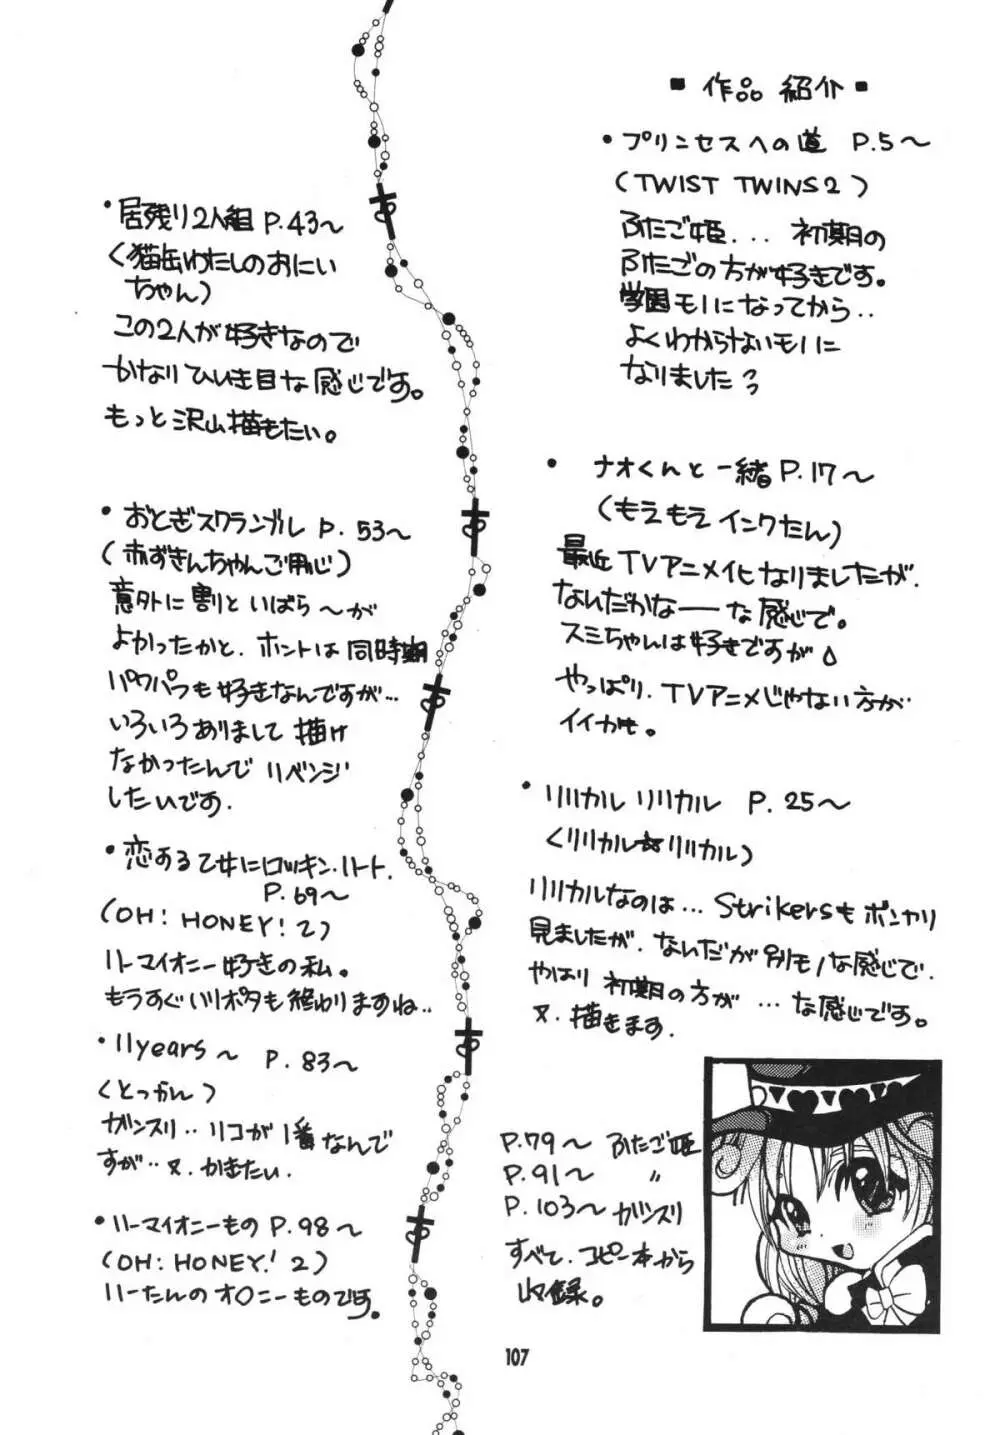 ▪ 作品 紹介 ▪
• プリンセスへの道 P.5～
(TWIST TWINS2)
ふたご姫... 初期の
ふたごの方が好きです。
学園モノになってから..
よくわからないモノに
なりました
• ナオくんと一緒 P.17～
(もえもえインクたん)
最近TVアニメ化になりましたが.
なんだかなーーな感じで。
スミちゃんは好きですが
やっぱり.TVアニメじゃない方が
イイかも。
• リリカルリリカル P.25～
(リリカル☆リリカル)
リリカルなのは... Strikersもポンヤリ
見ましたが.なんだが別モノな感じで.
やはり初期の方が ...な感じです。
又.描きます.
• 居残り2人組 P.43～
(猫缶わたしのおにい
ちゃん)
この2人が好きなので
かなりひいき目な感じです。
もっと沢山描きたい。
• おとぎスクランブル P.53～
(赤ずきんちゃんご用心)
意外に割といばら～が
よかったかと.ホントは同時期
パワパフも好きなんですが...
いろいろありまして描け
なかったんでリベンジ
したいです.
• 恋する乙女にロッキン・ハート.
P.69～
(OH! HONEY! 2)
ハーマイオニー好きの私。
もうすぐハリポタも終わりますね..
• 11years～ P.83～
(とっかん)
ガンスリ..リコが1番なんで
すが..又.かきたい.
• ハーマイオニーもの P.98～
(OH! HONEY! 2)
ハーたんのオ〇ニーものです.
P.79～ ふたご姫
P.91～ 〃
P.103～ ガンスリ
すべて.コピー本から
収録。
107